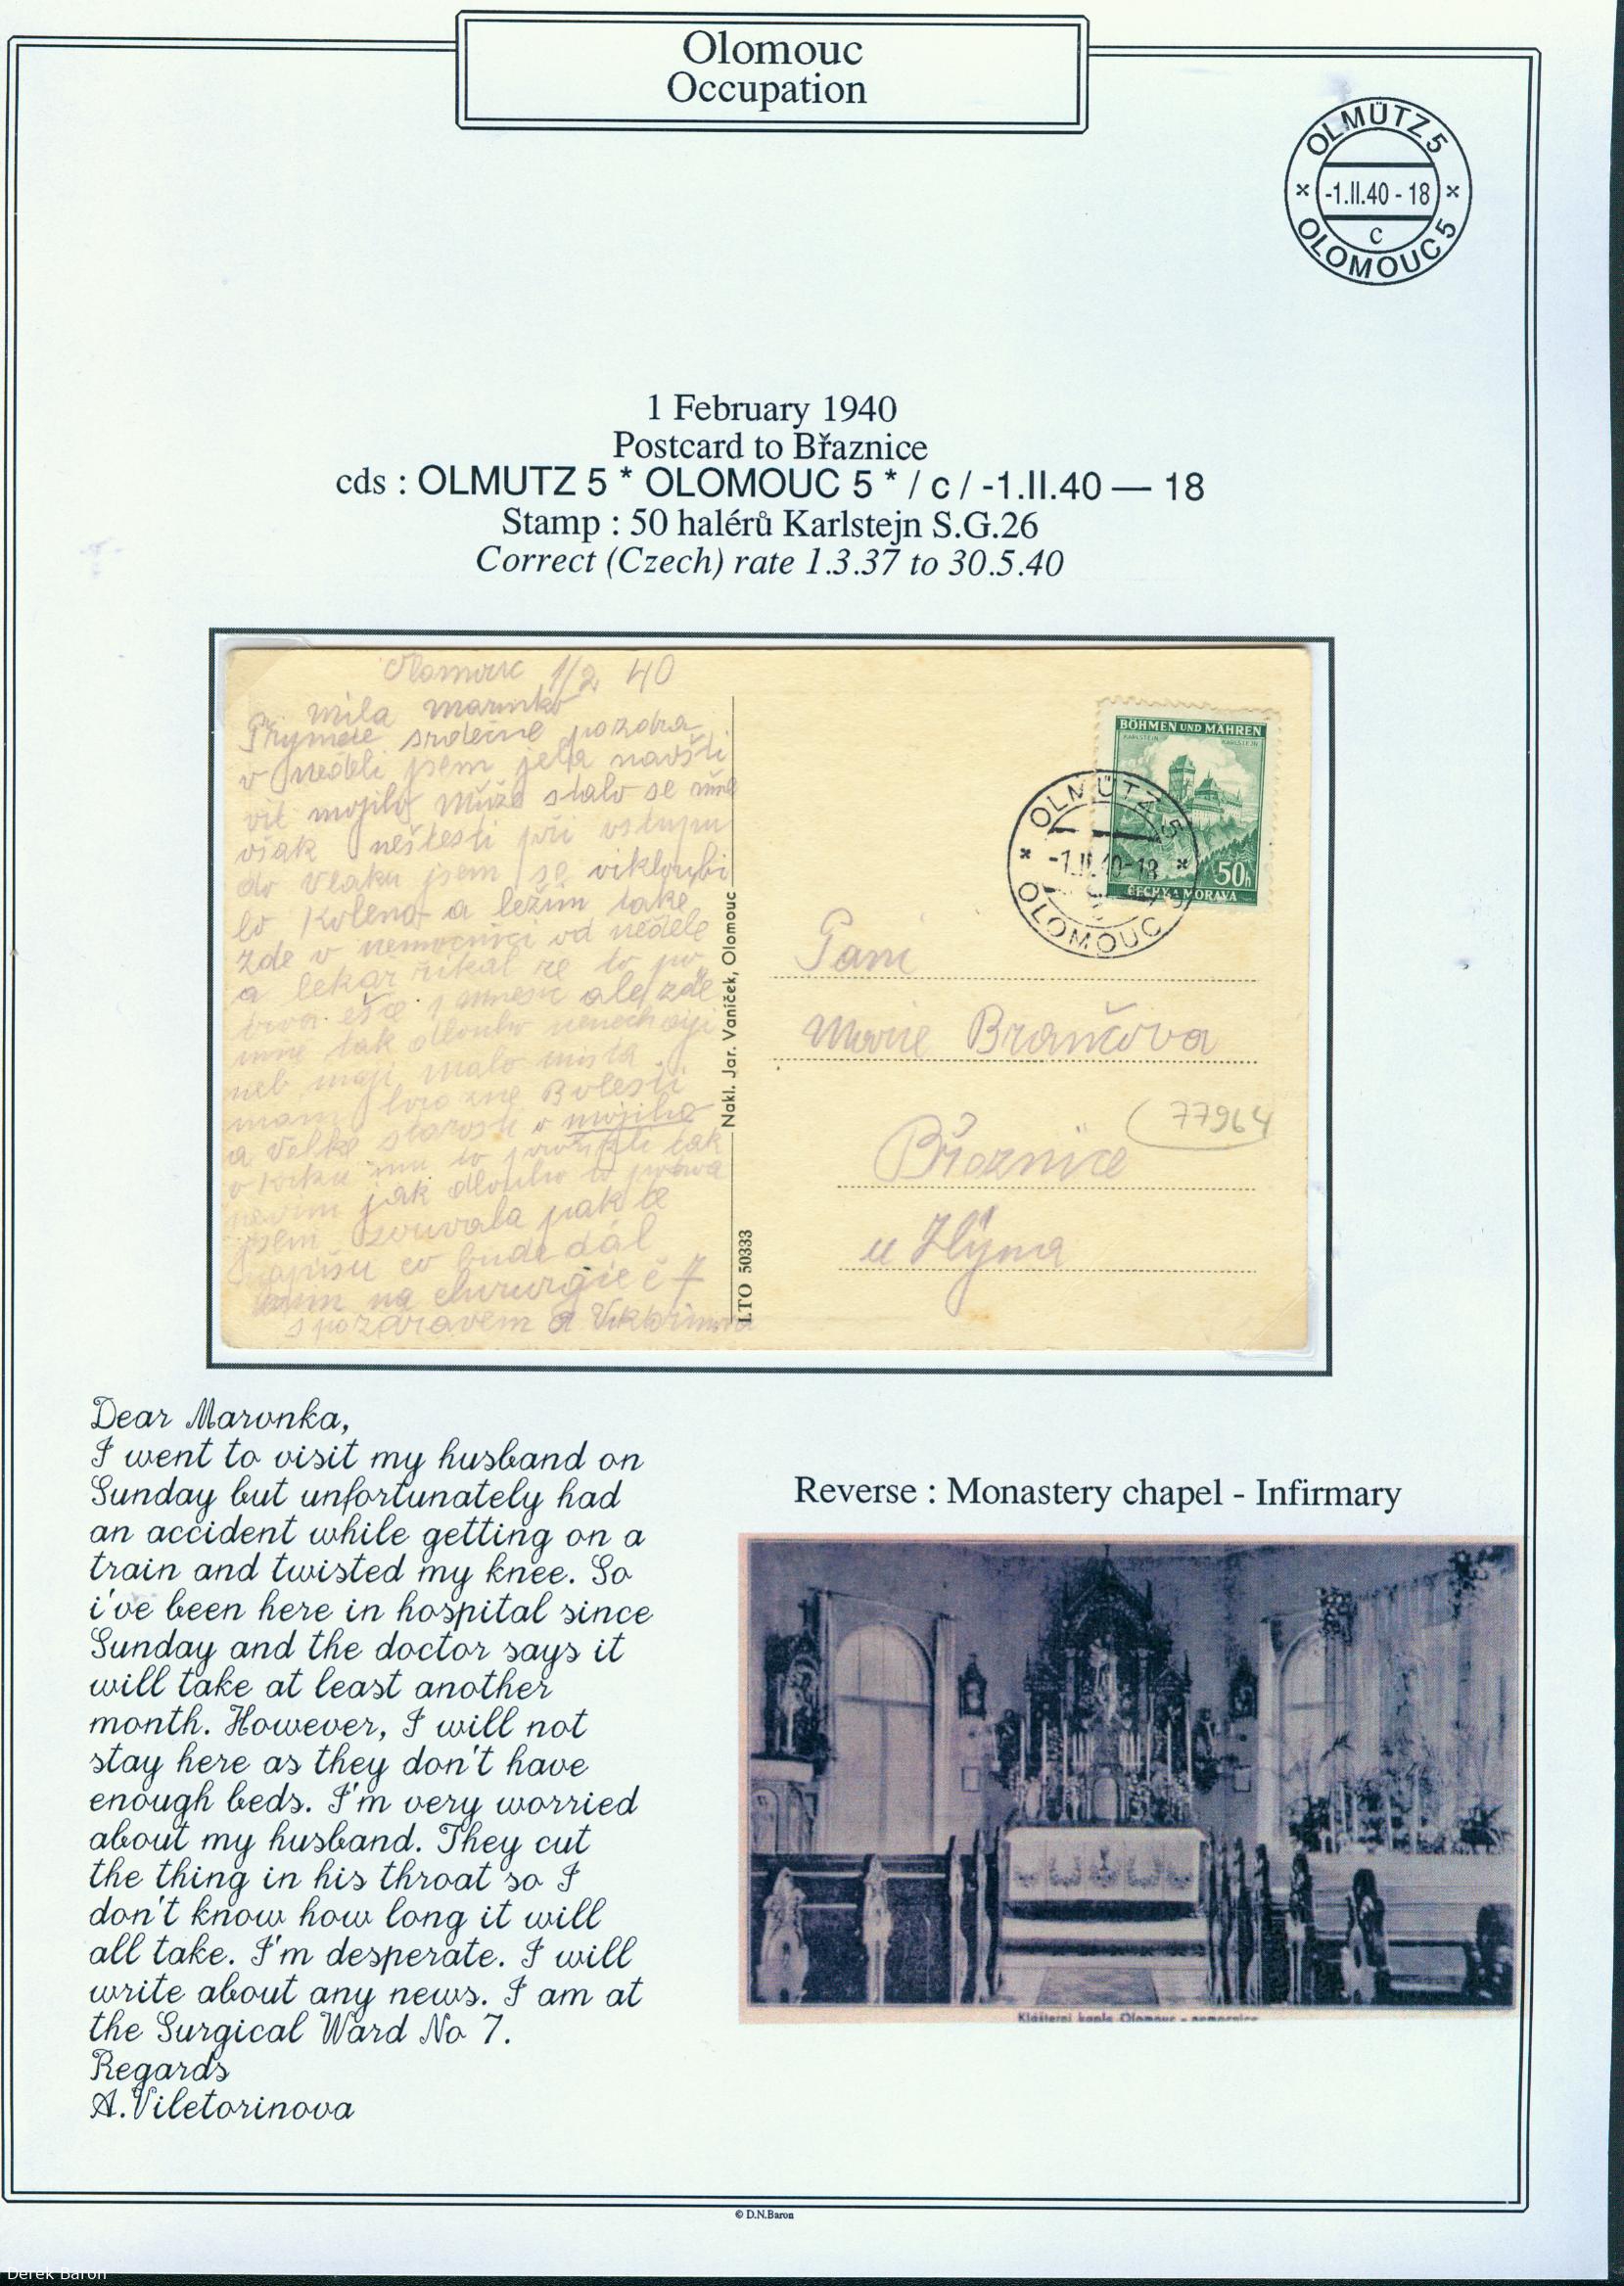 Olomouc
Occupation
OLMÜTZ 5
-1.II.40 - 18
c
OLOMOUC 5
1 February 1940
Postcard to Břaznice
cds : OLMUTZ 5 * OLOMOUC 5 * / c / -1.II.40 — 18
Stamp : 50 halérů Karlstejn S.G.26
Correct (Czech) rate 1.3.37 to 30.5.40
Olomouc 1/2 40
mila marunko
srdečne pozdra
v neděli jsem jela navšti
vit mojiho Muže stalo se mňe
však neštesti při vstupu
do vlaku jsem se vikloubi
lo Koleno a ležim take
zde v nemocnici od neděle
a lekař řikal ze to po
trva ešče 1 mnesic ale zde
mne tak dlouho nenechaji
neb maji malo mista
mam hrozne Bolesti
a velke starosti o mojiho
v krku mu to prořizli tak
nevim jak dlouho to potrva
jsem zoufala pak te
napišu co bude dál
na chirurgie č 7
s pozdravem A Viktorinova
BÖHMEN UND MÄHREN
KARLSTEIN KARLSTEJN
50h
ČECHY A MORAVA
OLMÜTZ 5
-1.II.40-18
OLOMOUC 5
Nakl. Jar. Vaníček, Olomouc
LTO 50333
Pani
Marie Brančova
77964
Březnice
u Zlýna
Dear Maronka,
I went to visit my husband on
Sunday but unfortunately had
an accident while getting on a
train and twisted my knee. So
i've been here in hospital since
Sunday and the doctor says it
will take at least another
month. However, I will not
stay here as they don't have
enough beds. I'm very worried
about my husband. They cut
the thing in his throat so I
don't know how long it will
all take. I'm desperate. I will
write about any news. I am at
the Surgical Ward No 7.
Regards
A.Viletorinova
Reverse : Monastery chapel - Infirmary
Klášterní kaple Olomouc - nemocnice
© D.N.Baron
Derek Baron